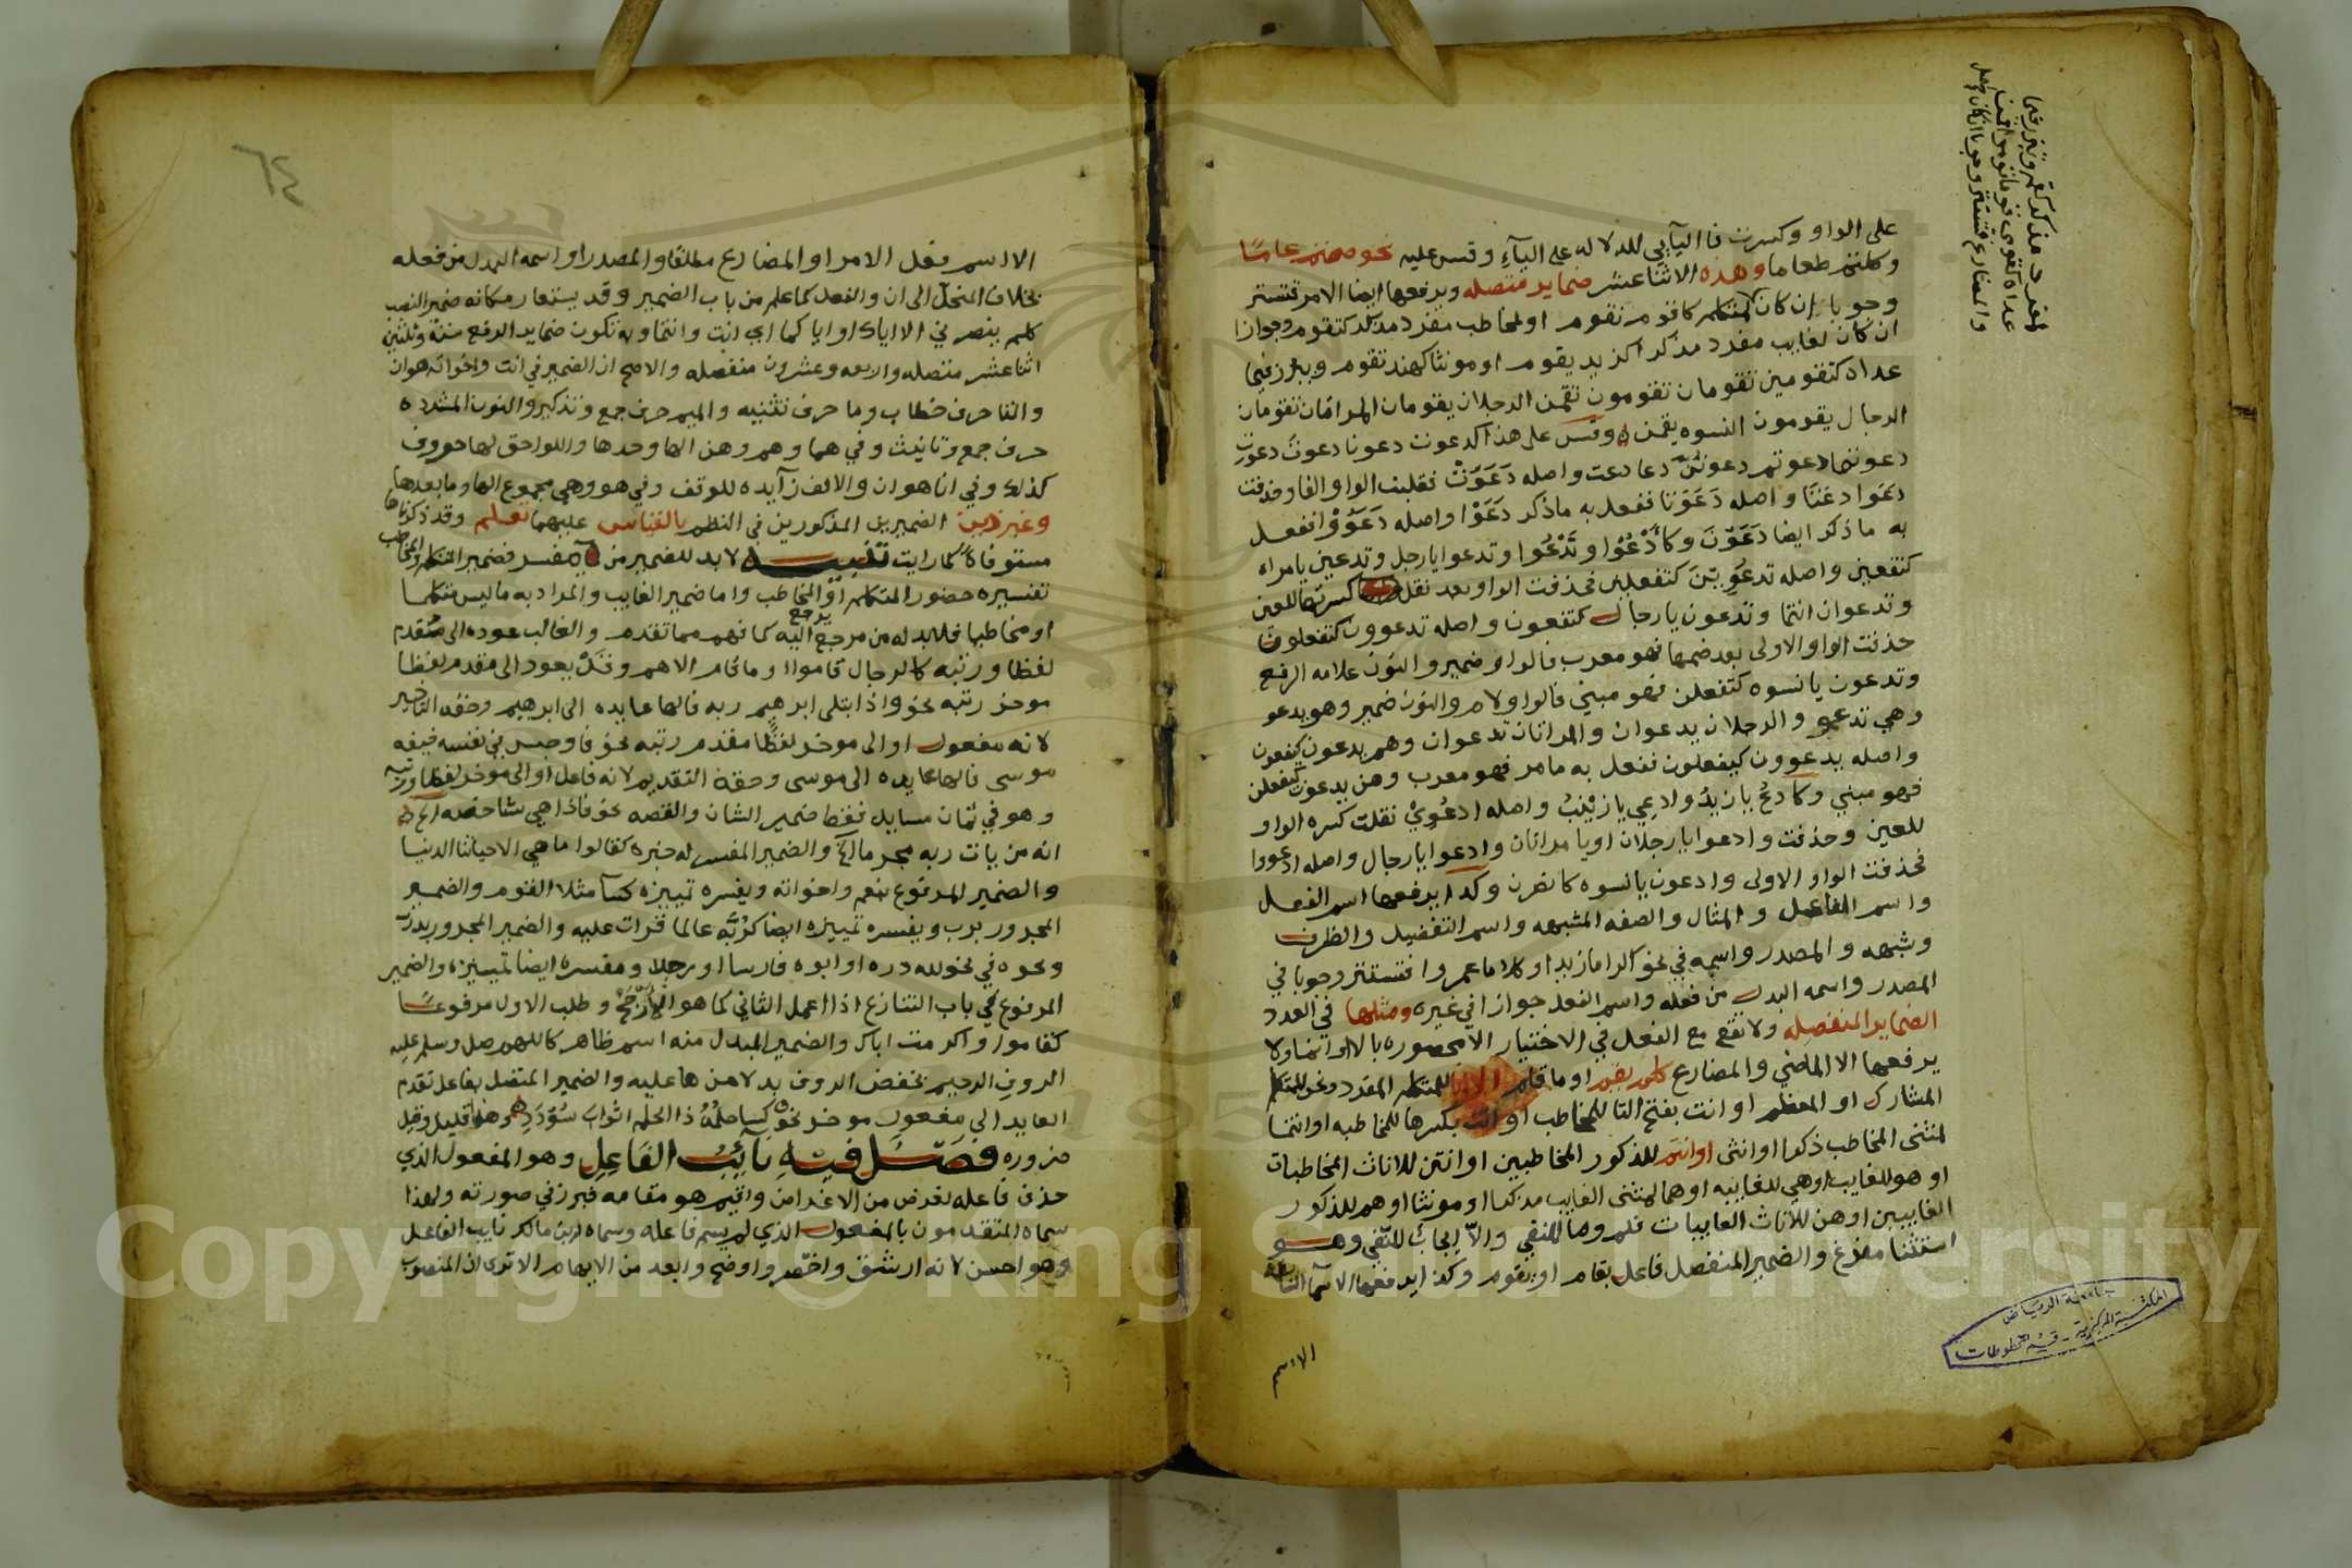 على الواو وكسرت فا اليآيي للدلاله على اليآء وقس عليه نحو صمتم عامًا
وكلتم طعاما وهذه الاثناعشر ضماير متصله ويرفعها ايضا الامر فتستتر
وجوبا ان كان لمتكلم كاقوم نقوم او لمخاطب مفرد مذكر كتقوم وجوازا
ان كان لغايب مفرد مذكر اكزيد يقوم او مونثا كهند تقوم ويبرز فيما
عداه كتقومين تقومان تقومون تقمن الرجلان يقومان المراتان تقومان
الرجال يقومون النسوه يقمن ه وقس على هذا كدعوت دعونا دعوتَ دعوتِ
دعوتما دعوتم دعوتن دعا دعت واصله دَعَوَتْ فقلبت الواو الفا وحذفت
دَعَوا دعَتَا واصله دَعَوَتا ففعل به ماذكر دَعَوْا واصله دَعَوُوْا ففعل
به ماذكر ايضا دَعَوْنَ وكأَدْعُوْا ونَدْعُوا وتدعوا يارجل وتدعين يامراه
كتفعين واصله تدعُوِيْنَ كتفعلين فحذفت الواو بعد نقل كسرتها للعين
وتدعوان انتما وتدعون يارجال كتفعون واصله تدعوون كتفعلون
حذفت الواو الاولى بعد ضمها فهو معرب فالواو ضمير والنون علامه الرفع
وتدعون يانسوه كتفعلن فهو مبني فالواو لام والنون ضمير وهو يدعو
وهي تدعو والرجلان يدعوان والمراتان تدعوان وهم يدعون كيفعون
واصله يدعوون كيفعلون ففعل به مامر فهو معرب وهن يدعون كيفعلن
فهو مبني وكادعُ يازيدُ وادعِي يازيْنَبُ واصله ادعُوِيْ نقلت كسره الواو
للعين وحذفت وادعوا يارجلان اويا مراتان وادعوا يارجال واصله ادعووا
فحذفت الواو الاولى وادعون يانسوه كانصرن وكذا يرفعها اسم الفعل
واسم الفاعل والمثال والصفه المشبهه واسم التفضيل والظرف
وشبهه والمصدر واسمه في نحو اكراما زيد او كلاما عمروا فتستتر وجوبا في
المصدر واسمه البدل من فعله واسم الفعل جوازا في غيره ومثلها في العدد
الضماير المنفصله ولا تقع مع الفعل في الاختيار الا محصوره بالا او انما ولا
يرفعها الا الماضي والمضارع كلم يقم او ما قام الا انا للمتكلم المفرد ونحن للمتكلم
المشارك او المعظم او انت بفتح التا للمخاطب او انت بكسرها للمخاطبه او انتما
لمثنى المخاطب ذكرا او انثى او انتم للذكور المخاطبين او انتن للاناث المخاطبات
او هو للغايب او هي للغايبه او هما لمثنى الغايب مذكرا او مونثا او هم للذكور
الغايبين او هن للاناث الغايبات فلم وما للنفي والاّ ايجابٌ للنفي وهو
استثنا مفرغ والضمير المنفصل فاعل بقام او يقوم وكذا يرفعها الاسما السابقه
الاسم
المفرد مذكر كقم وتبرز فيما
عداه كقومي قوما قوموا قمن
والمضارع فتستتر وجوبا ان كان
جامعة الرياض
المكتبة المركزية - قسم المخطوطات
٦٤
الا اسم فعل الامر او المضارع مطلقا والمصدر او اسمه البدل من فعله
بخلاف المنحل الى ان والفعل كما علم من باب الضمير وقد يستعار مكانه ضمير النصب
كلم ينصرني الا اياك او اياكما اي انت وانتما وبه تكون ضماير الرفع ستة وثلثين
اثناعشر متصله واربعه وعشرون منفصله والاصح ان الضمير في انت واخواته هو ان
والتا حرف خطاب وما حرف تثنيه والميم حرف جمع وتذكير والنون المشدده
حرف جمع وتانيث وفي هما وهم وهن الها وحدها واللواحق لها حروف
كذلك وفي انا هو ان والالف زآيده للوقف وفي هو وهي مجموع الها وما بعدها
وغير ذين الضميرين المذكورين في النظم بالقياس عليهما تعلم وقد ذكرناها
مستوفاة كما رايت تنبيه لابد للضمير من مفسر فضمير المتكلم والمخاطب
تفسيره حضور المتكلم او المخاطب واما ضمير الغايب والمراد به ما ليس متكلما
او مخاطبا فلابد له من مرجع يرجع اليه كما فهم مما تقدم والغالب عوده الى متقدم
لفظا ورتبه كالرجال قاموا او ما قام الا هم وقد يعود الى مقدم لفظا
موخر رتبه نحو واذ ابتلى ابرهيم ربه فالها عايده الى ابرهيم وحقه التاخير
لانه مفعول او الى موخر لفظا مقدم رتبه نحو فاوجس في نفسه خيفه
موسى فالها عايده الى موسى وحقه التقديم لانه فاعل او الى موخر لفظا ورتبه
وهو في ثمان مسايل فقط ضمير الشان والقصه نحو فاذا هي شاخصه الخ
انه من يات ربه مجرما الخ والضمير المفسر له خبره كقالوا ما هي الا حياتنا الدنيا
والضمير المرفوع بنعم واخواته ويفسره تمييزه كسآ مثلا القوم والضمير
المجرور برب ويفسره تمييزه ايضا كرُبَّه عالما قرات عليه والضمير المجرور بدرّ
ونحوه في نحو لله دره او ابوه فارسا او رجلا ومفسره ايضا تمييزه والضمير
المرفوع في باب التنازع اذا اعمل الثاني كما هو الارجح وطلب الاول مرفوعًا
كقاموا واكرمت اباك والضمير المبدل منه اسم ظاهر كاللهم صل وسلم عليه
الروف الرحيم بخفض الروف بدلا من ها عليه والضمير المتصل بفاعل تقدم
العايد الى مفعول موخر نحو كسا حلمُهُ ذا الحلم اثوابَ سُؤْدَدِ وهو قليل وقيل
ضروره فَصْلٌ فيه نَآئِبُ الفَاعِلِ وهو المفعول الذي
حذف فاعله لغرض من الاغراض واقيم هو مقامه فبرز في صورته ولهذا
سماه المتقدمون بالمفعول الذي لم يسم فاعله وسماه ابن مالك نايب الفاعل
وهو احسن لانه ارشق واخصر واوضح وابعد من الابهام الا ترى ان المنصوب
Copyright © King Saud University